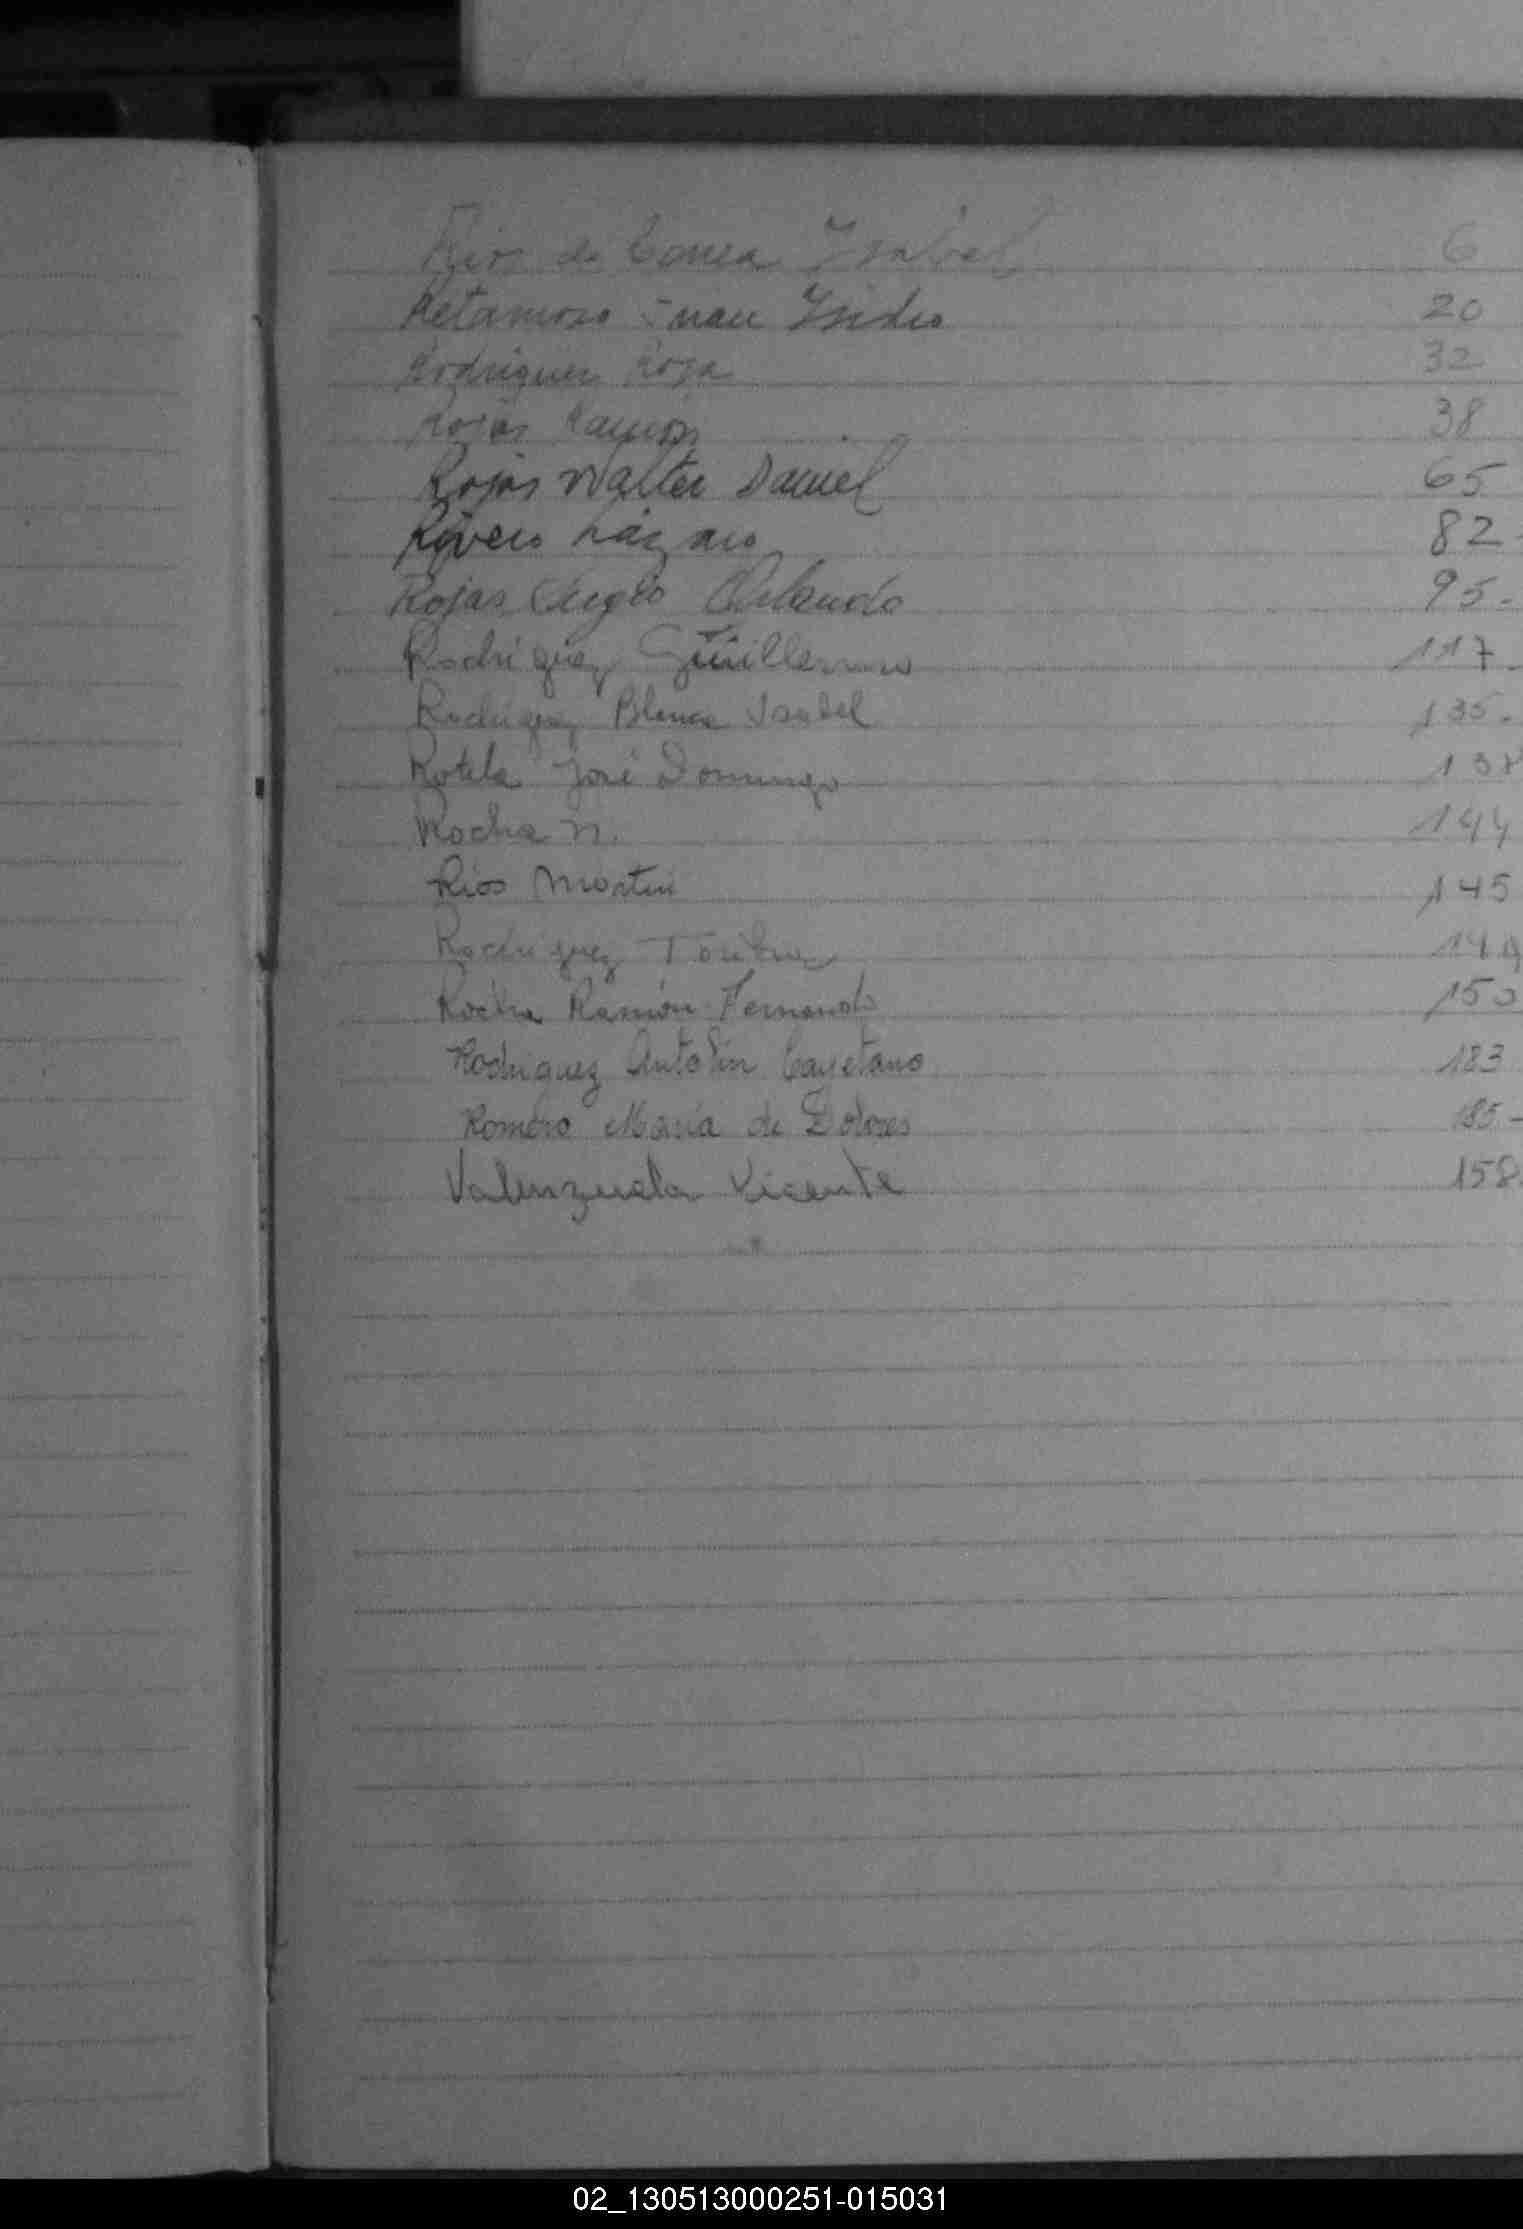 Rios de Correa Ysabel 6
Retamoso Juan Ysidro 20
Rodriguez Rosa 32
Rojas Ramon 38
Rojas Walter Daniel 65
Rivero Lázaro 82-
Rojas Orlando 95-
Rodriguez Guillermo 117-
Rodriguez Blanca Isabel 135-
Rotela José Domingo 138
Rocha N. 144
Rios Martin 145
Rodriguez 149
Rocha Ramón Fernando 150
Rodriguez Antolin Cayetano 183
Romero María de Dolores 185-
Valenzuela Vicente 158.
02_130513000251-015031